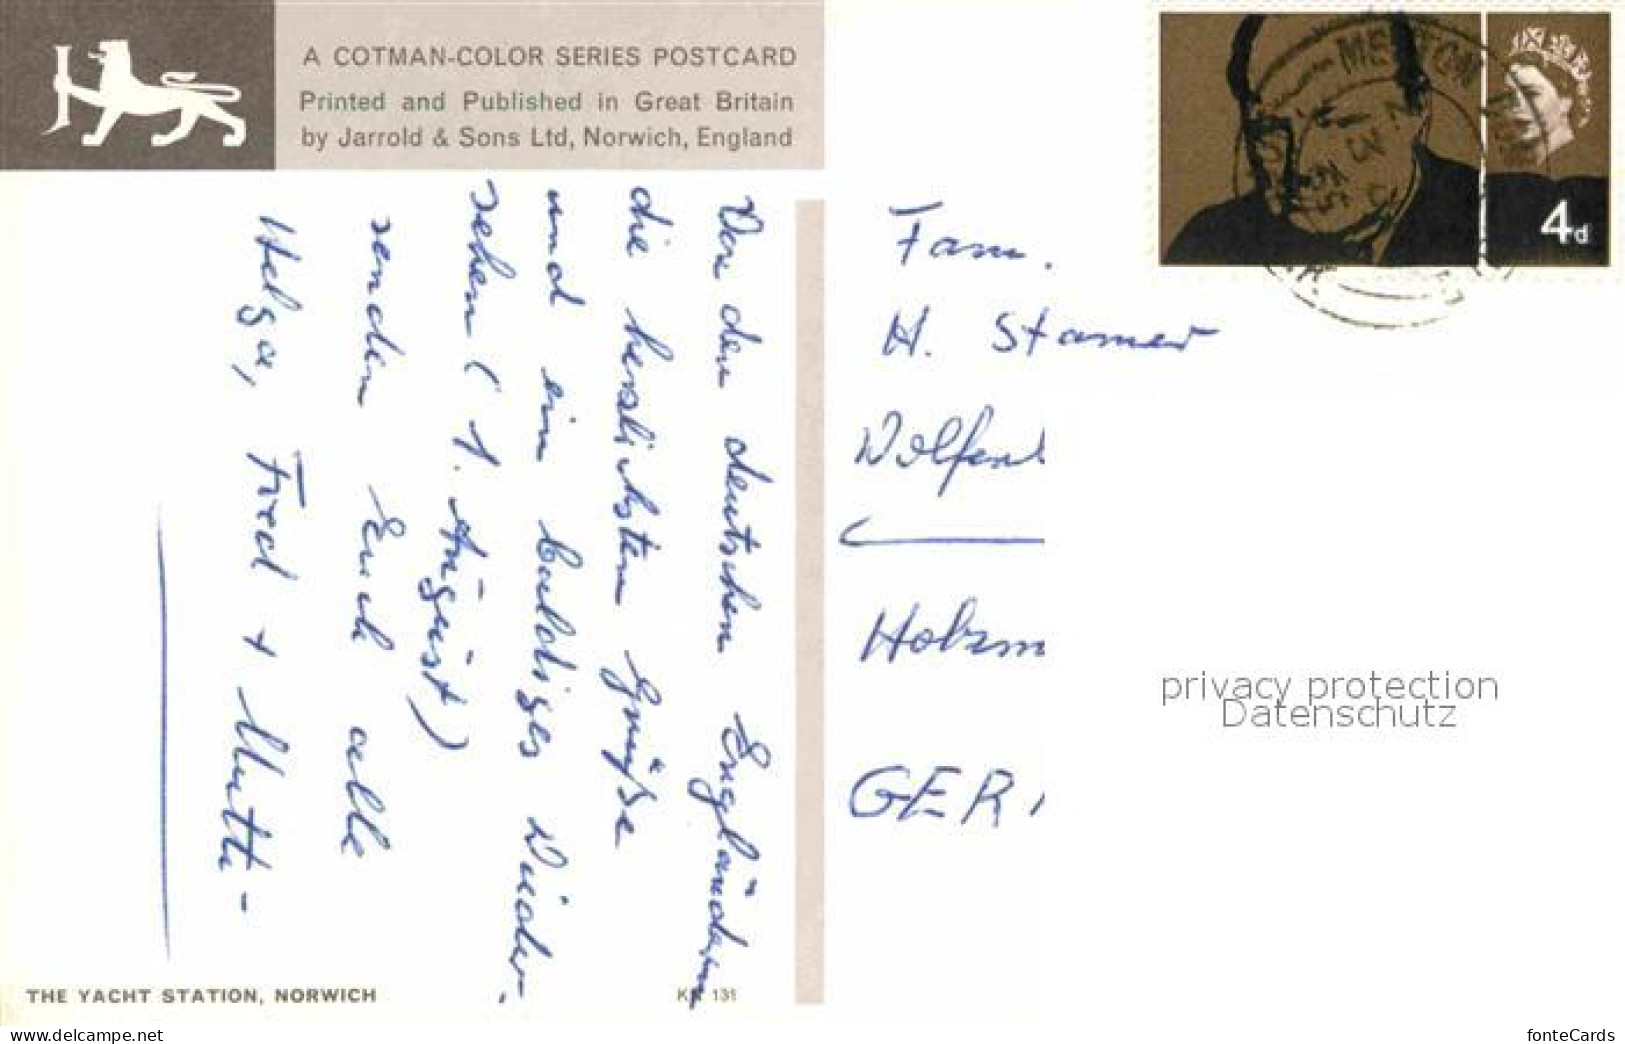 A COTMAN-COLOR SERIES POSTCARD
Printed and Published in Great Britain
by Jarrold & Sons Ltd, Norwich, England
Von den deutschen Engländern
die herzlichsten Grüße
und ein baldiges Wieder-
sehen (1. August)
senden Euch alle
Helga, Fred + Mutti -
THE YACHT STATION, NORWICH
131
4d
Fam.
H. Stamer
Wolfen
Holzm
GER
privacy protection
Datenschutz
www.delcampe.net
fonteCards